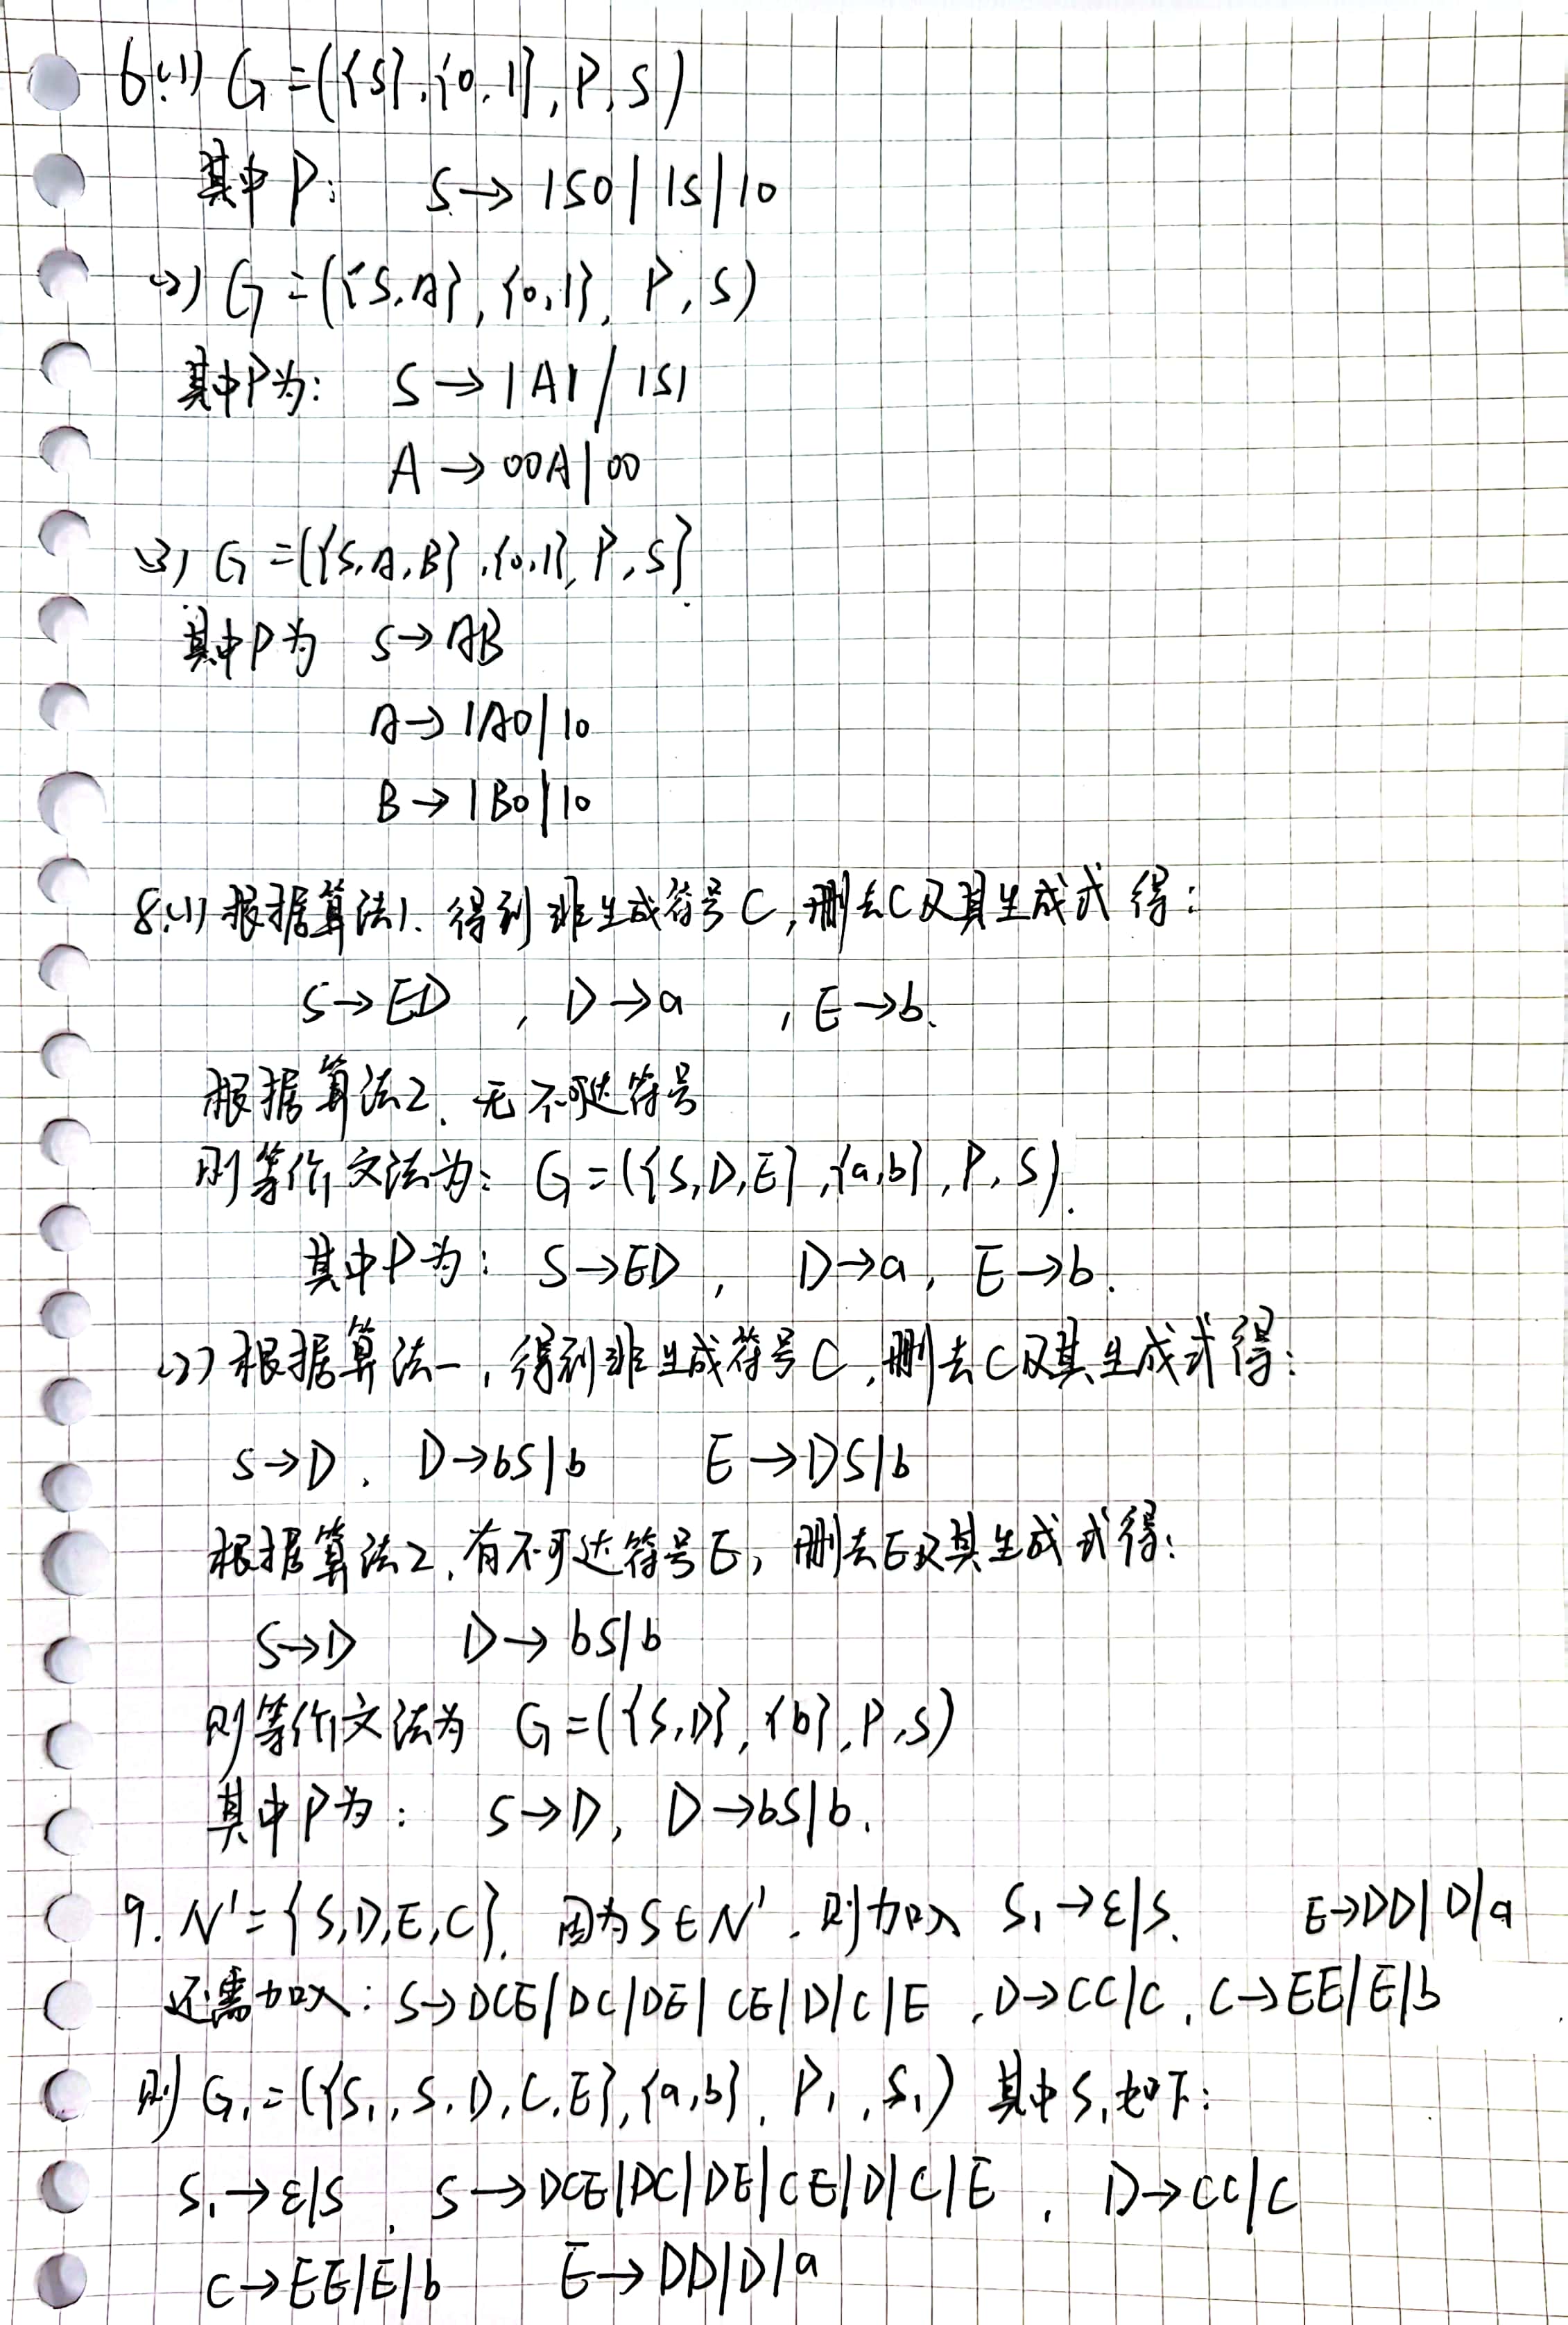 6.(1) G=({S},{0,1},P,S)
其中P: S→1S0|1S|10
(2) G=({S,A},{0,1},P,S)
其中P为: S→1A1/1S1
A→00A|00
(3) G=({S,A,B},{0,1},P,S}
其中P为 S→AB
A→1A0|10
B→1B0|10
8.(1) 根据算法1. 得到非生成符号C,删去C及其生成式得:
S→ED , D→a , E→b.
根据算法2. 无不可达符号
则等价文法为: G=({S,D,E},{a,b},P,S).
其中P为: S→ED, D→a, E→b.
(2) 根据算法一,得到非生成符号C,删去C及其生成式得:
S→D. D→bS|b E→DS|b
根据算法2.有不可达符号E,删去E及其生成式得:
S→D D→bS|b
则等价文法为 G=({S,D},{b},P,S)
其中P为: S→D, D→bS|b.
9. N'={S,D,E,C}. 因为S∈N'.则加入 S₁→ε|S. E→DD|D|a
还需加入: S→DCE|DC|DE|CE|D|C|E ,D→CC|C,C→EE|E|b
则G₁=({S₁,S,D,C,E},{a,b},P₁,S₁) 其中S₁如下:
S₁→ε|S , S→DCE|DC|DE|CE|D|C|E , D→CC|C
C→EE|E|b E→DD|D|a